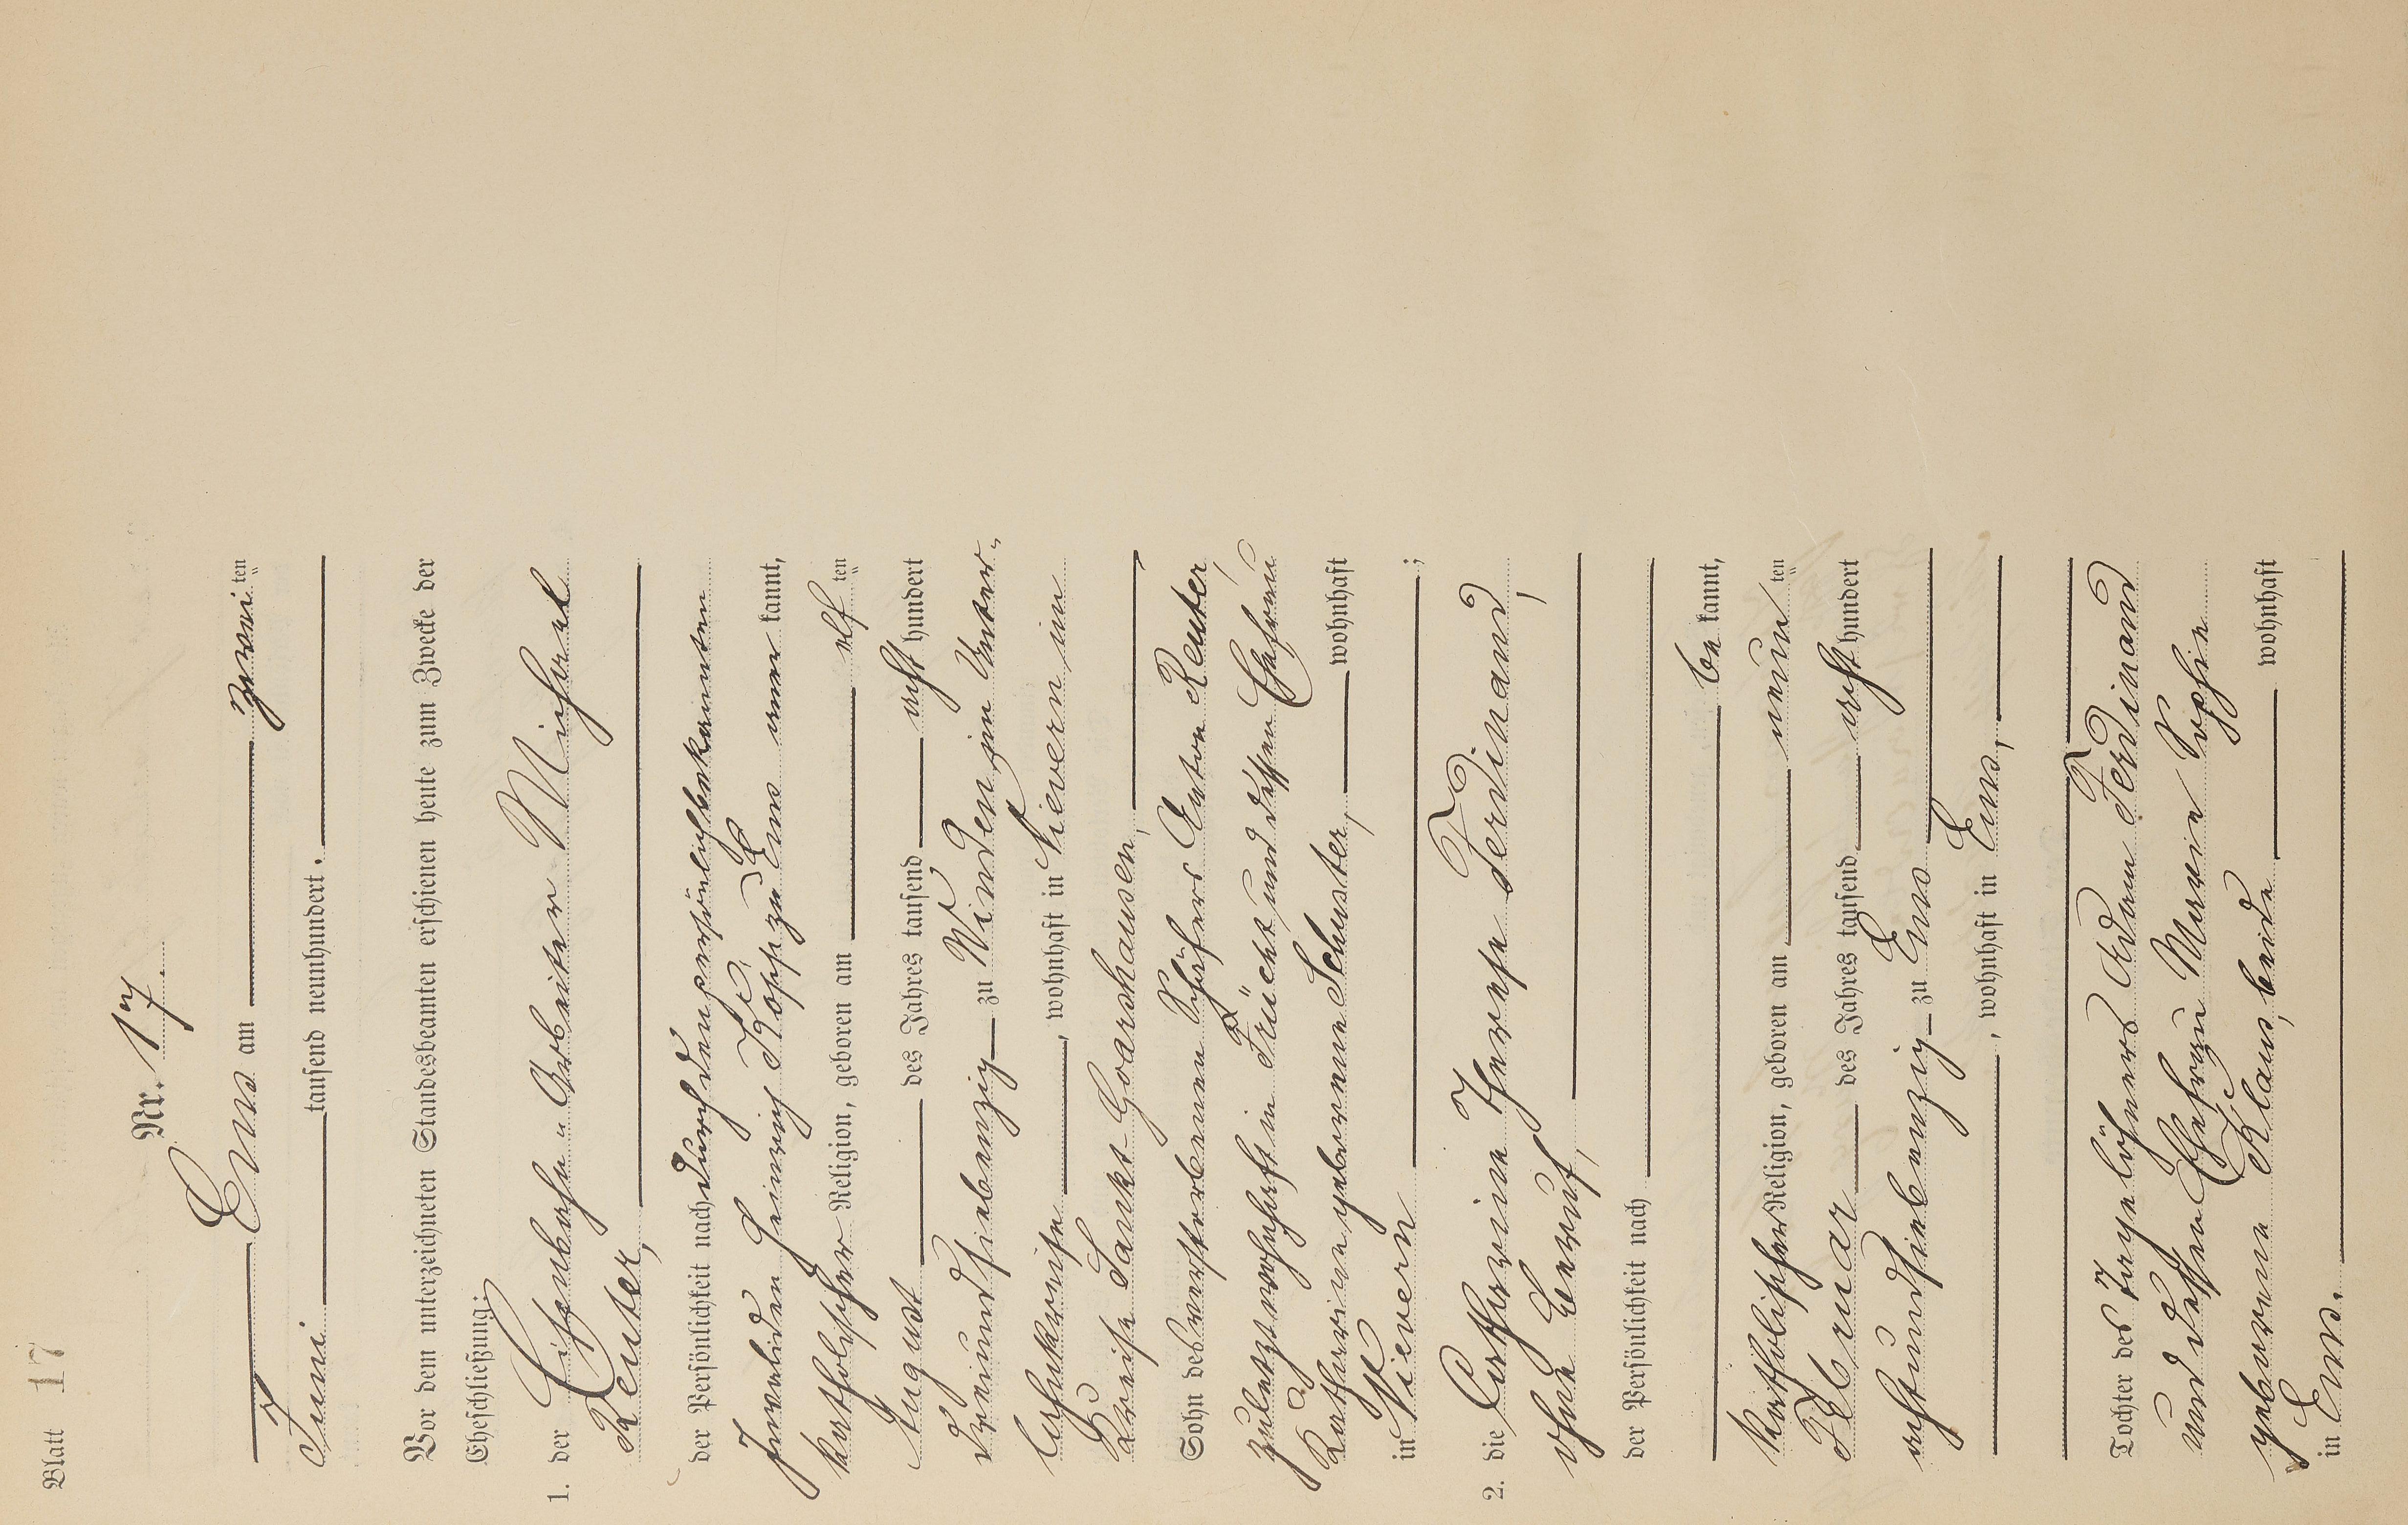 Blatt 17
Nr. 17.
Ems am zwei ten
Juni tausend neunhundert.
Vor dem unterzeichneten Standesbeamten erschienen heute zum Zwecke der
Eheschließung:
1. der Eisenbahn-Arbeiter Michael
Reuter,
der Persönlichkeit nach durch den persönlich bekannten
Invaliden Heinrich Kopp zu Ems aner kannt,
katholischer Religion, geboren am elf ten
August des Jahres tausend acht hundert
dreiundsiebenzig zu Winden im Unter-
lahnkreise, wohnhaft in Nievern im
Kreise Sankt Goarshausen,
Sohn des verstorbenen Schäfers Anton Reuter,
zuletzt wohnhaft in Frücht und dessen Ehefrau
Katharina geborenen Schuster, wohnhaft
in Nievern ;
2. die Catharina Therese Ferdinand,
ohne Beruf,
der Persönlichkeit nach
be kannt,
katholischer Religion, geboren am neun ten
Februar des Jahres tausend acht hundert
achtundsiebenzig zu Ems
, wohnhaft in Ems,
Tochter des Tagelöhners Adam Ferdinand
und dessen Ehefrau Maria Sophia
geborene Klaus, beide wohnhaft
in Ems.